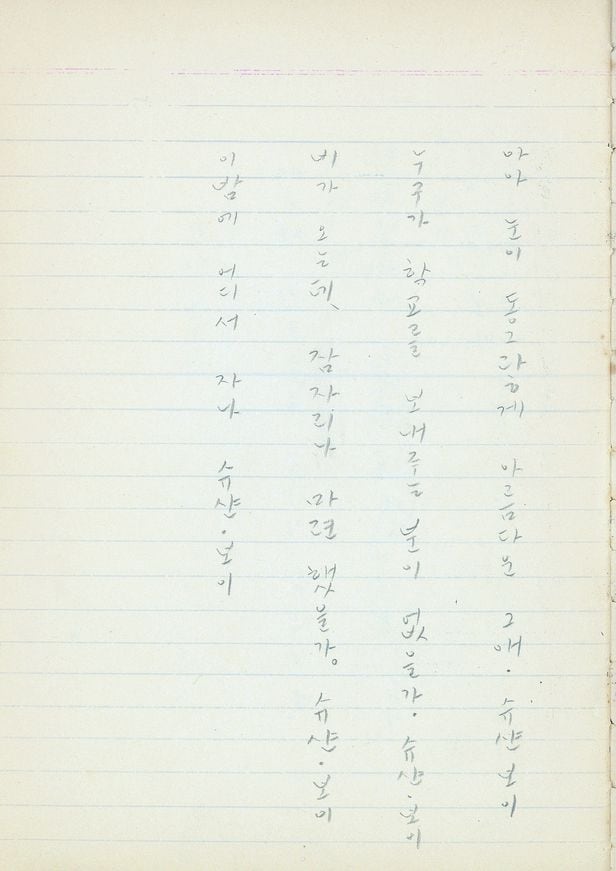 아아 눈이 동그랗게 아름다운 그애. 슈샨 보이
누구가 학교를 보내주는 분이 없을가. 슈샨·보이
비가 오는데, 잠자리나 마련했을가. 슈샨·보이
이밤에 어디서 자나 슈샨·보이